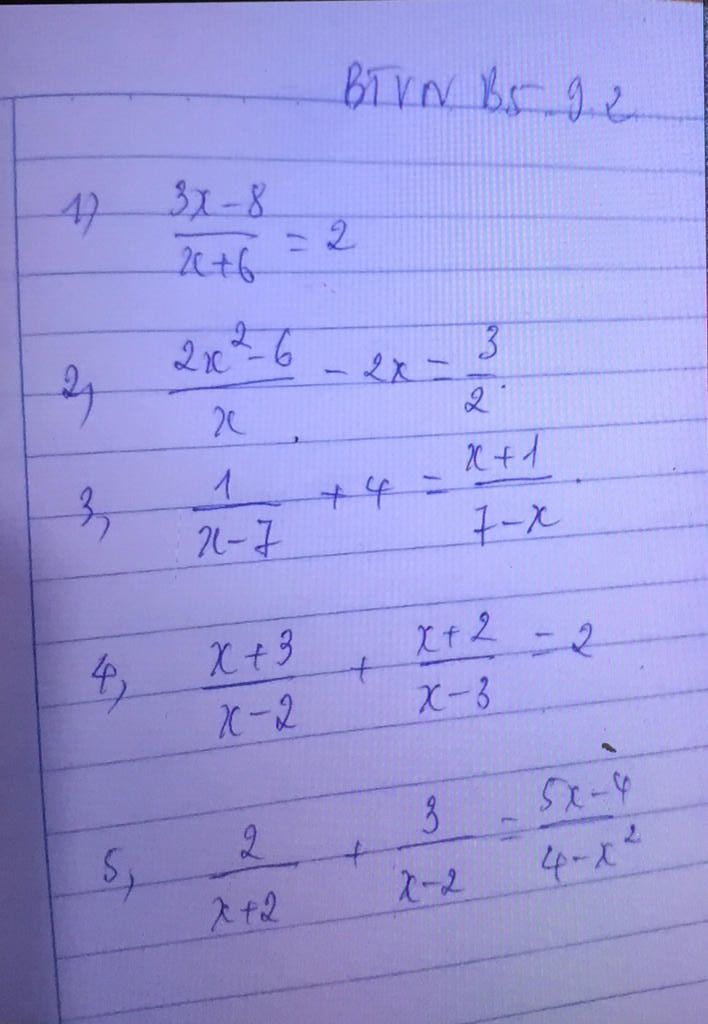 BTVN B5 9.2
1) (3x-8)/(x+6) = 2
2, (2x²-6)/x - 2x = 3/2.
3, 1/(x-7) + 4 = (x+1)/(7-x).
4, (x+3)/(x-2) + (x+2)/(x-3) = 2
5, 2/(x+2) + 3/(x-2) = (5x-4)/(4-x²)